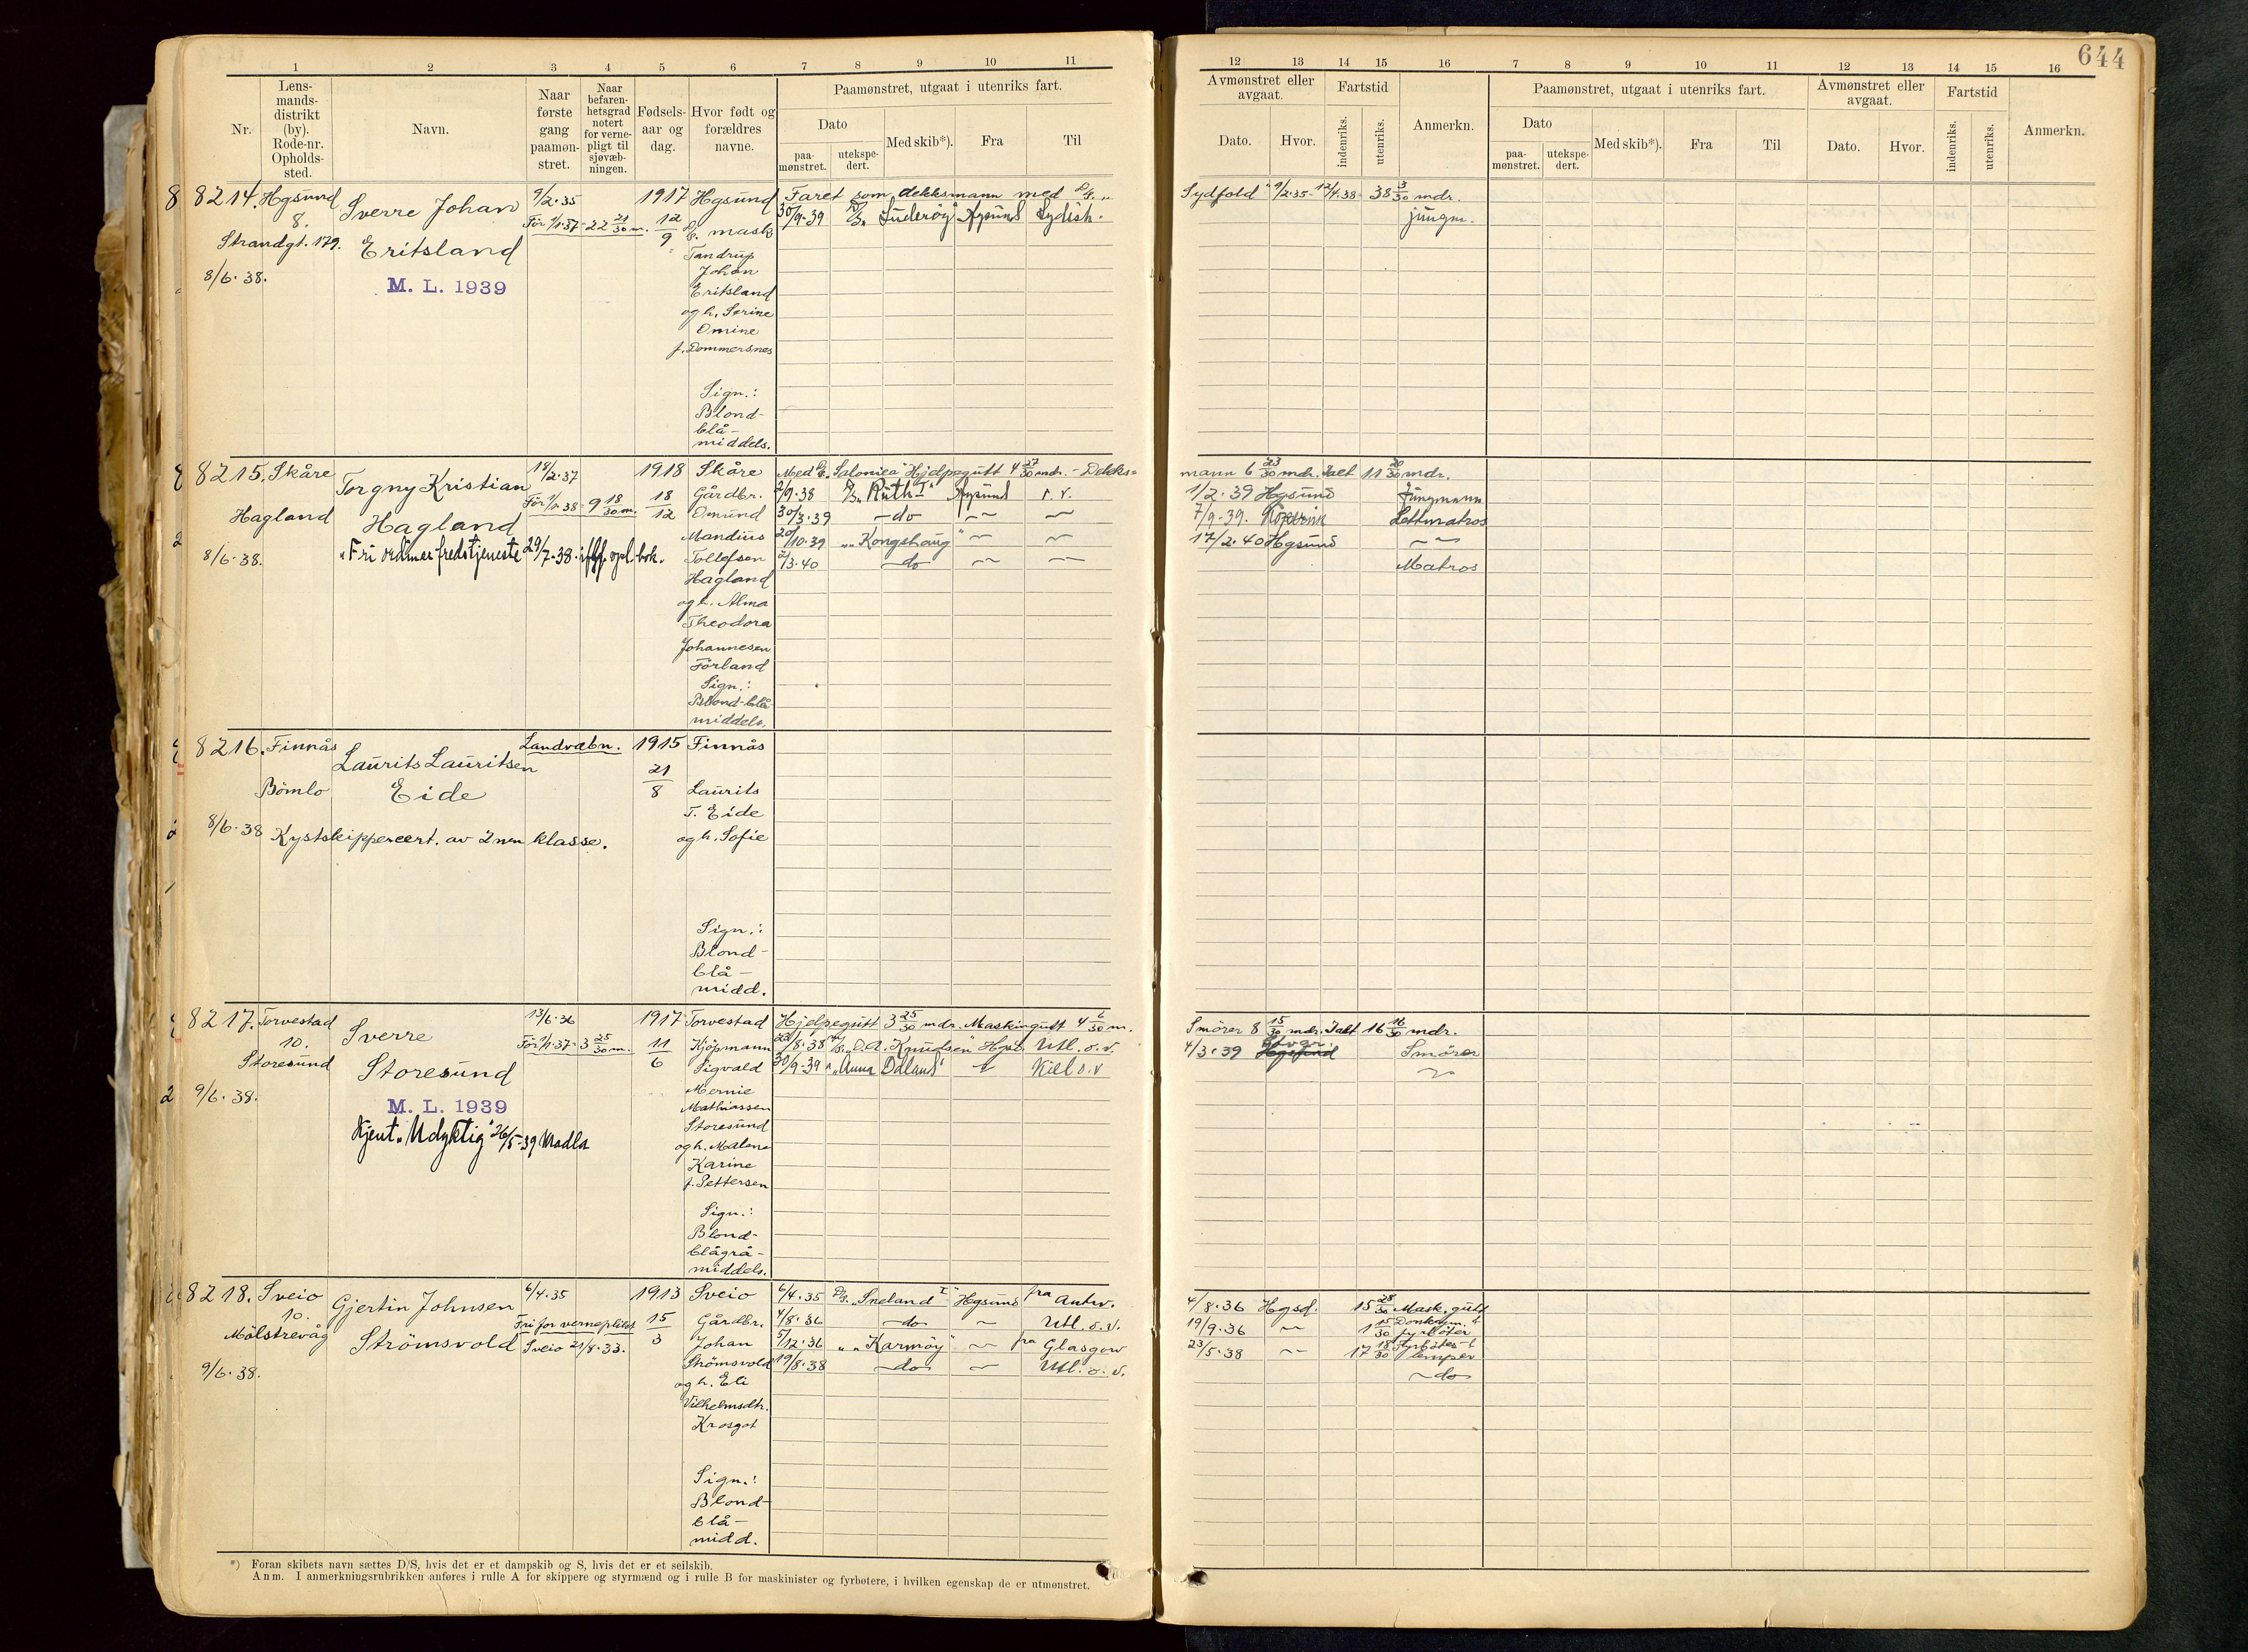 644
1 2 3 4 5 6 7 8 9 10 11
Nr.
Lens-
mands-
distrikt
(by).
Rode-nr.
Opholds-
sted.
Navn.
Naar
første
gang
paamøn-
stret.
Naar
befaren-
hetsgrad
notert
for verne-
pligt til
sjøvæb-
ningen.
Fødsels-
aar og
dag.
Hvor født og
forældres
navne.
Paamønstret, utgaat i utenriks fart.
Dato
paa-
mønstret.
utekspe-
dert.
Med skib*).
Fra
Til
12 13 14 15 16
Avmønstret eller
avgaat.
Dato.
Hvor.
Fartstid
indenriks.
utenriks.
Anmerkn.
7 8 9 10 11 12 13 14 15 16
Paamønstret, utgaat i utenriks fart.
Dato
paa-
mønstret.
utekspe-
dert.
Med skib*).
Fra
Til
Avmønstret eller
avgaat.
Dato.
Hvor.
Fartstid
indenriks.
utenriks.
Anmerkn.
8214. Hgsund
8.
Strandgt. 179.
8/6.38.
Sverre Johan
Eritsland
M. L. 1939
9/2.35
Før 1/1.37 - 22 21/30 m.
1917
12
9
Hgsund
mask
Tandrup
Johan
Eritsland
og h. Serine
Omine
f. Dommersnes
Sign.:
Blond-
blå-
middels.
Faret som dekksmann med D/S "Sydfold" 9/2.35 - 12/4.38 - 38 3/30 mdr.
30/9-39 "Suderøy" Hgsund Sydish.
jungm.
8215. Skåre
Hagland
8/6.38.
Torgny Kristian
Hagland
"Fri ordinær fredstjeneste 29/7.38. iflg. opl. bok.
18/2.37
Før 1/1.38 9 18/30 m.
1918
18
12
Skåre
Gårdbr.
Omund
Mandius
Tollefsen
Hagland
og h. Alma
Theodora
Johannesen
Førland
Sign.:
Blond-blå
middels.
Med D/S "Salonica" Hjelpegutt 4 27/30 mdr. - Dekks=
mann 6 23/30 mdr. Ialt 11 20/30 mdr.
2/9.38 D/S "Ruth I" Hgsund s. v.
1/2.39 Hgsund Jungmann
30/3.39 - do -
7/9-39. Kopervik Lettmatros
20/10.39 "Kongshaug"
17/2.40 Hgsund
2/3.40 - do -
Matros
8216. Finnås
Bömlo
8/6.38
Laurits Lauritsen
Eide
Kystskippercert. av 2nen klasse.
Landvæbn.
1915
21
8
Finnås
Laurits
T. Eide
og h. Sofie
Sign.:
Blond-
blå-
midd.
8217. Torvestad
10.
Storesund
9/6.38.
Sverre
Storesund
M. L. 1939
Kjent "Udyktig" 26/5-39 Madla
13/6.36
Før 1/1.37 - 3 25/30 m.
1917
11
6
Torvestad
Kjøpmann
Sigvald
Mernie
Mathiassen
Storesund
og h. Malene
Karine
f. Pettersen
Sign.:
Blond-
blågrå-
middels.
Hjelpegutt 3 25/30 mdr. Maskingutt 4 6/30 m.
Smörer 8 15/30 mdr. Ialt 16 16/30 mdr.
"O. A. Knudsen" Hgsd. Utl. o. v.
4/3.39 Smörer
30/9.39 "Anna Odland" Kiel o. v
8218. Sveio
10.
Mölstrevåg
9/6.38.
Gjertin Johnsen
Strömsvold
6/4.35
Fri for verneplikt
Sveio 21/8.33.
1913
15
3
Sveio
Gårdbr.
Johan
Strömsvold
og h. Eli
Vilhelmsdtr.
Krosgot
Sign.:
Blond-
blå-
midd.
6/4.35 D/S "Sneland I" Hgsund fra Antw.
4/8.36 Hgsd. 15 28/30 Mask. gutt
4/8.36 - do - Utl. o. v.
19/9.36 1 15/30 Donkeym. & fyrböter
5/12.36 "Karmöy" fra Glasgow
23/5.38 17 18/30 Fyrböter & lemper
19/8.38 - do - Utl. o. v.
- do -
*) Foran skibets navn sættes D/S, hvis det er et dampskib og S, hvis det er et seilskib.
Anm. I anmerkningsrubrikken anføres i rulle A for skippere og styrmænd og i rulle B for maskinister og fyrbøtere, i hvilken egenskap de er utmønstret.